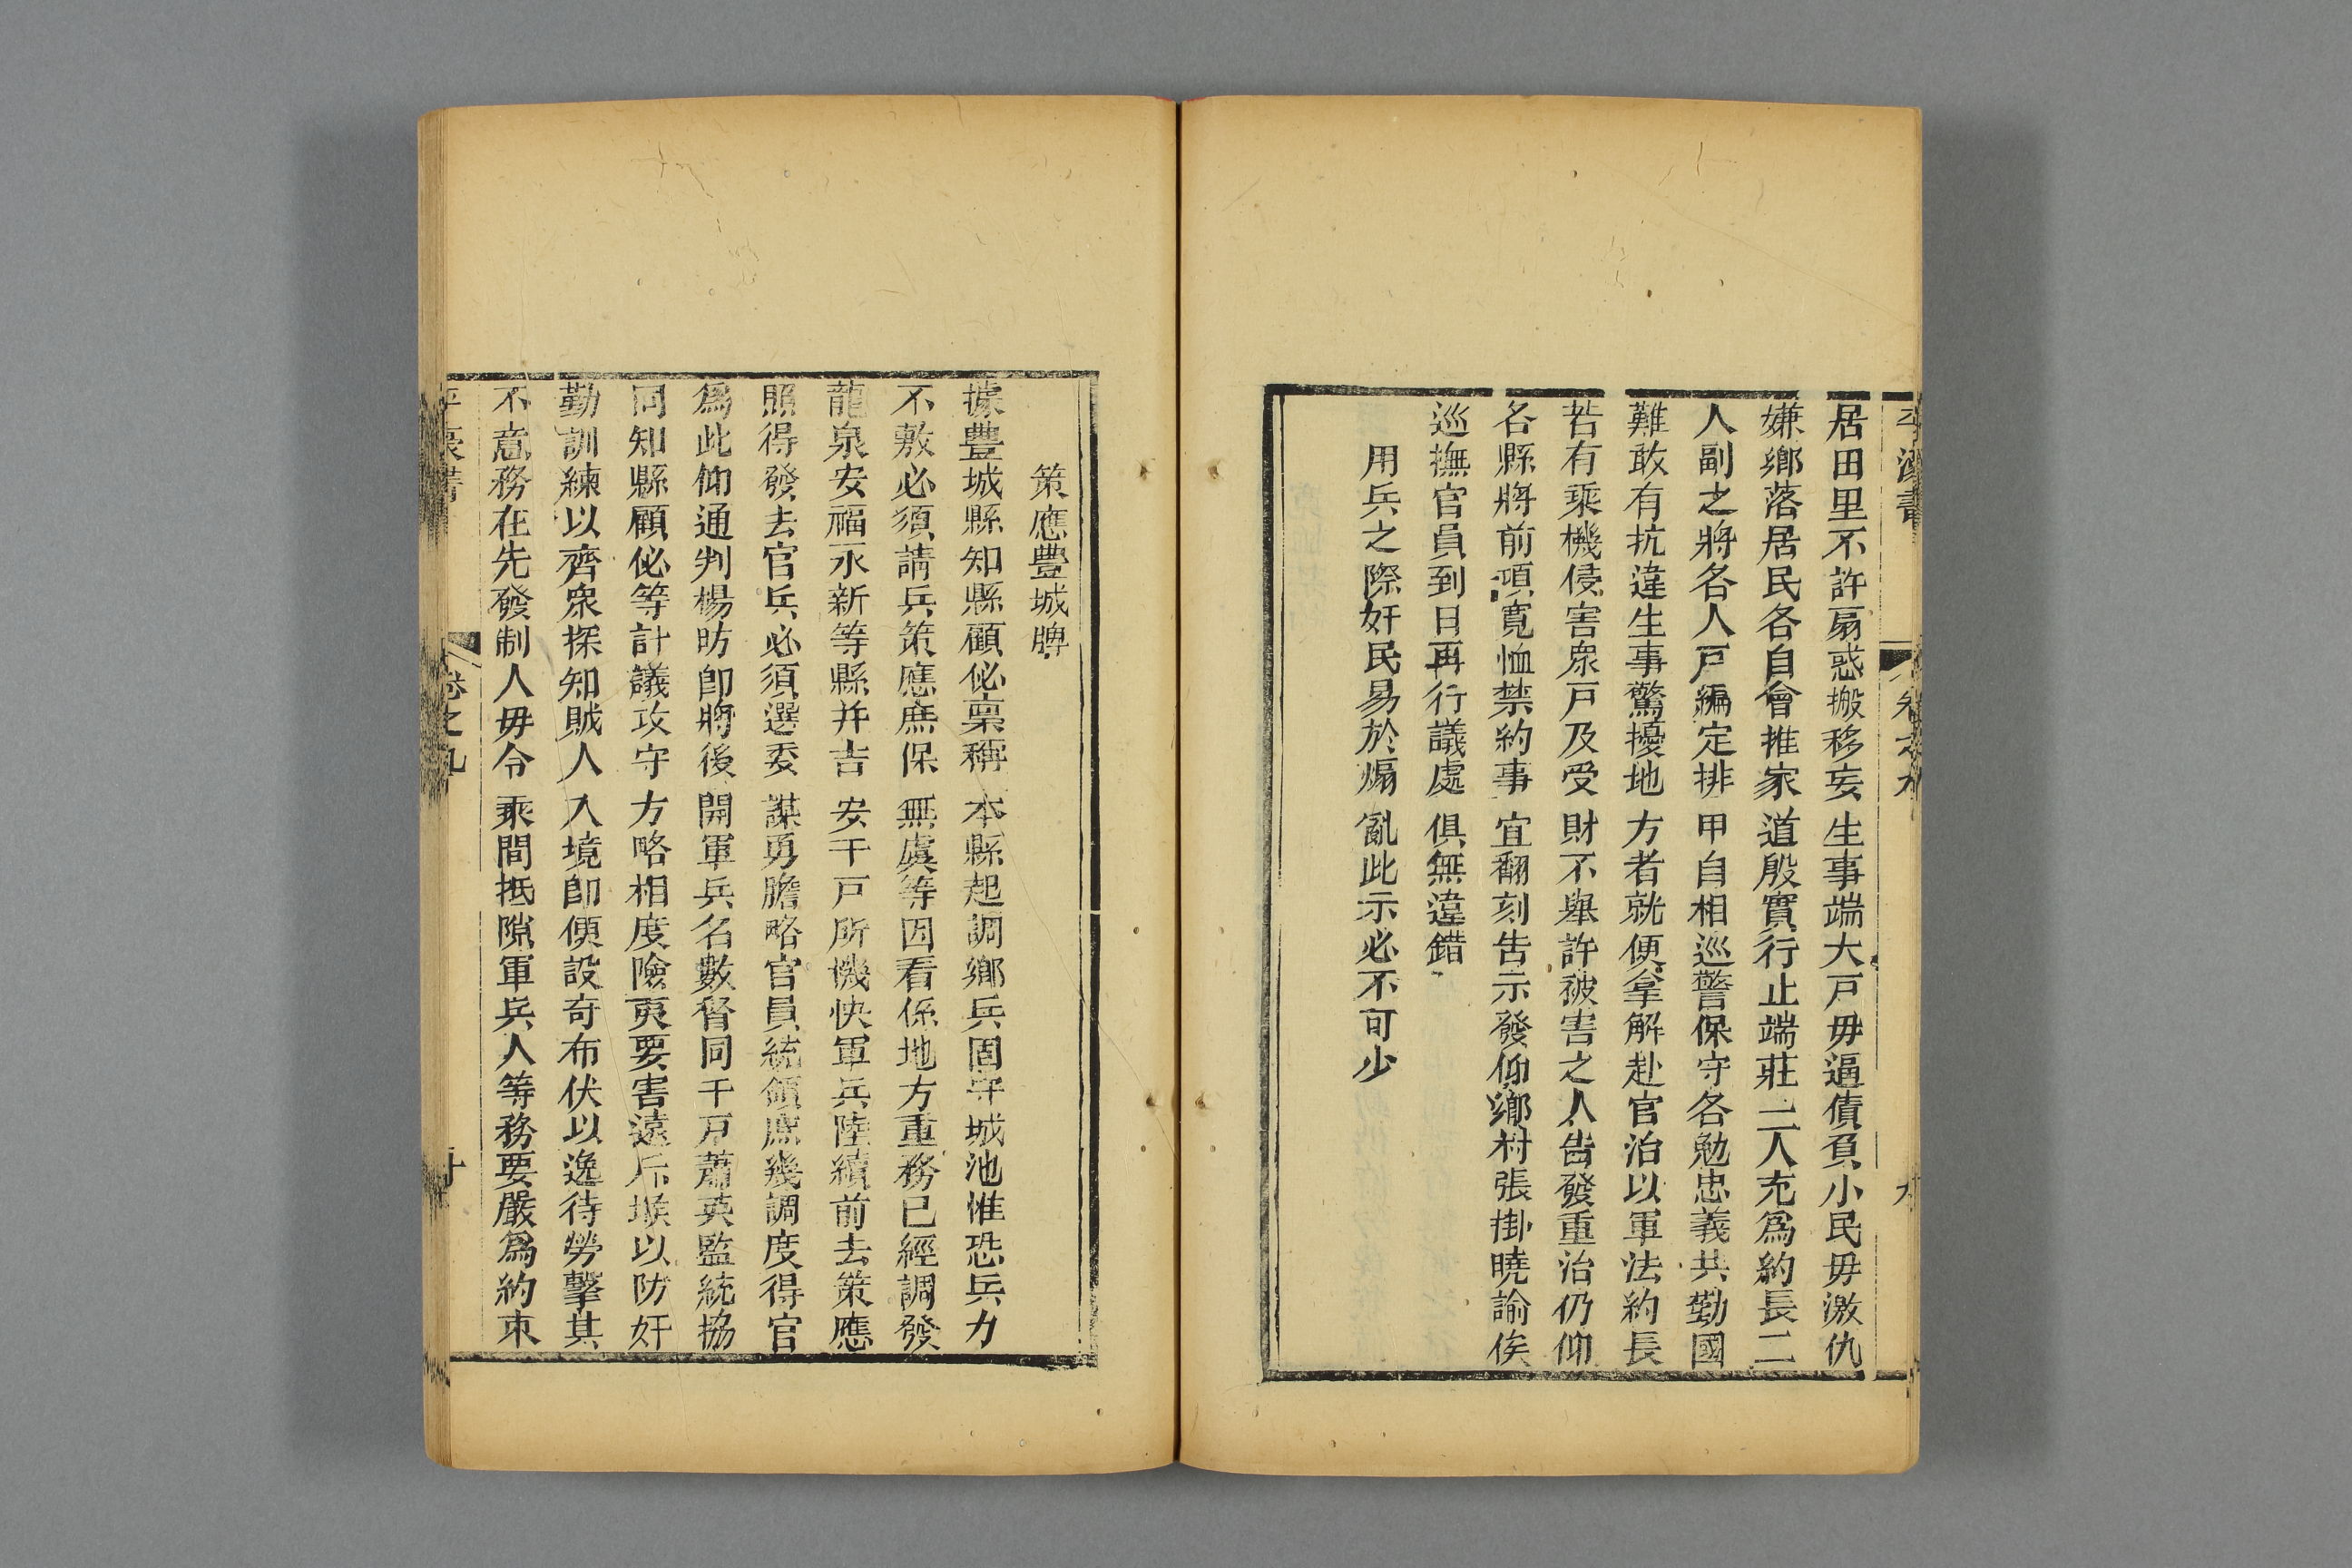 居田里不許扇惑搬移妄生事端大戸毋逼債負小民毋激仇
嫌鄉落居民各自會推家道殷實行止端莊二人充爲約長二
人副之將各人戸編定排甲自相巡警保守各勉忠義共勤國
難敢有抗違生事驚擾地方者就便拿解赴官治以軍法約長
若有乘機侵害衆戸及受財不舉許被害之人告發重治仍仰
各縣將前項寬恤禁約事宜翻刻告示發仰鄉村張掛曉諭俟
巡撫官員到日再行議處俱無違錯
用兵之際奸民易於煽亂此示必不可少
策應豐城牌
據豐城縣知縣顧佖稟稱本縣起調鄉兵固守城池惟恐兵力
不敷必須請兵策應庶保無虞等因看係地方重務已經調發
龍泉安福永新等縣并吉安千戸所機快軍兵陸續前去策應
照得發去官兵必須選委謀勇膽略官員統領庶幾調度得官
爲此仰通判楊昉卽將後開軍兵名數督同千戸蕭英監統協
同知縣顧佖等計議攻守方略相度險夷要害遠斥堠以防奸
勤訓練以齊衆探知賊人入境卽便設奇布伏以逸待勞擊其
不意務在先發制人毋令乘間抵隙軍兵人等務要嚴爲約束
卷之九